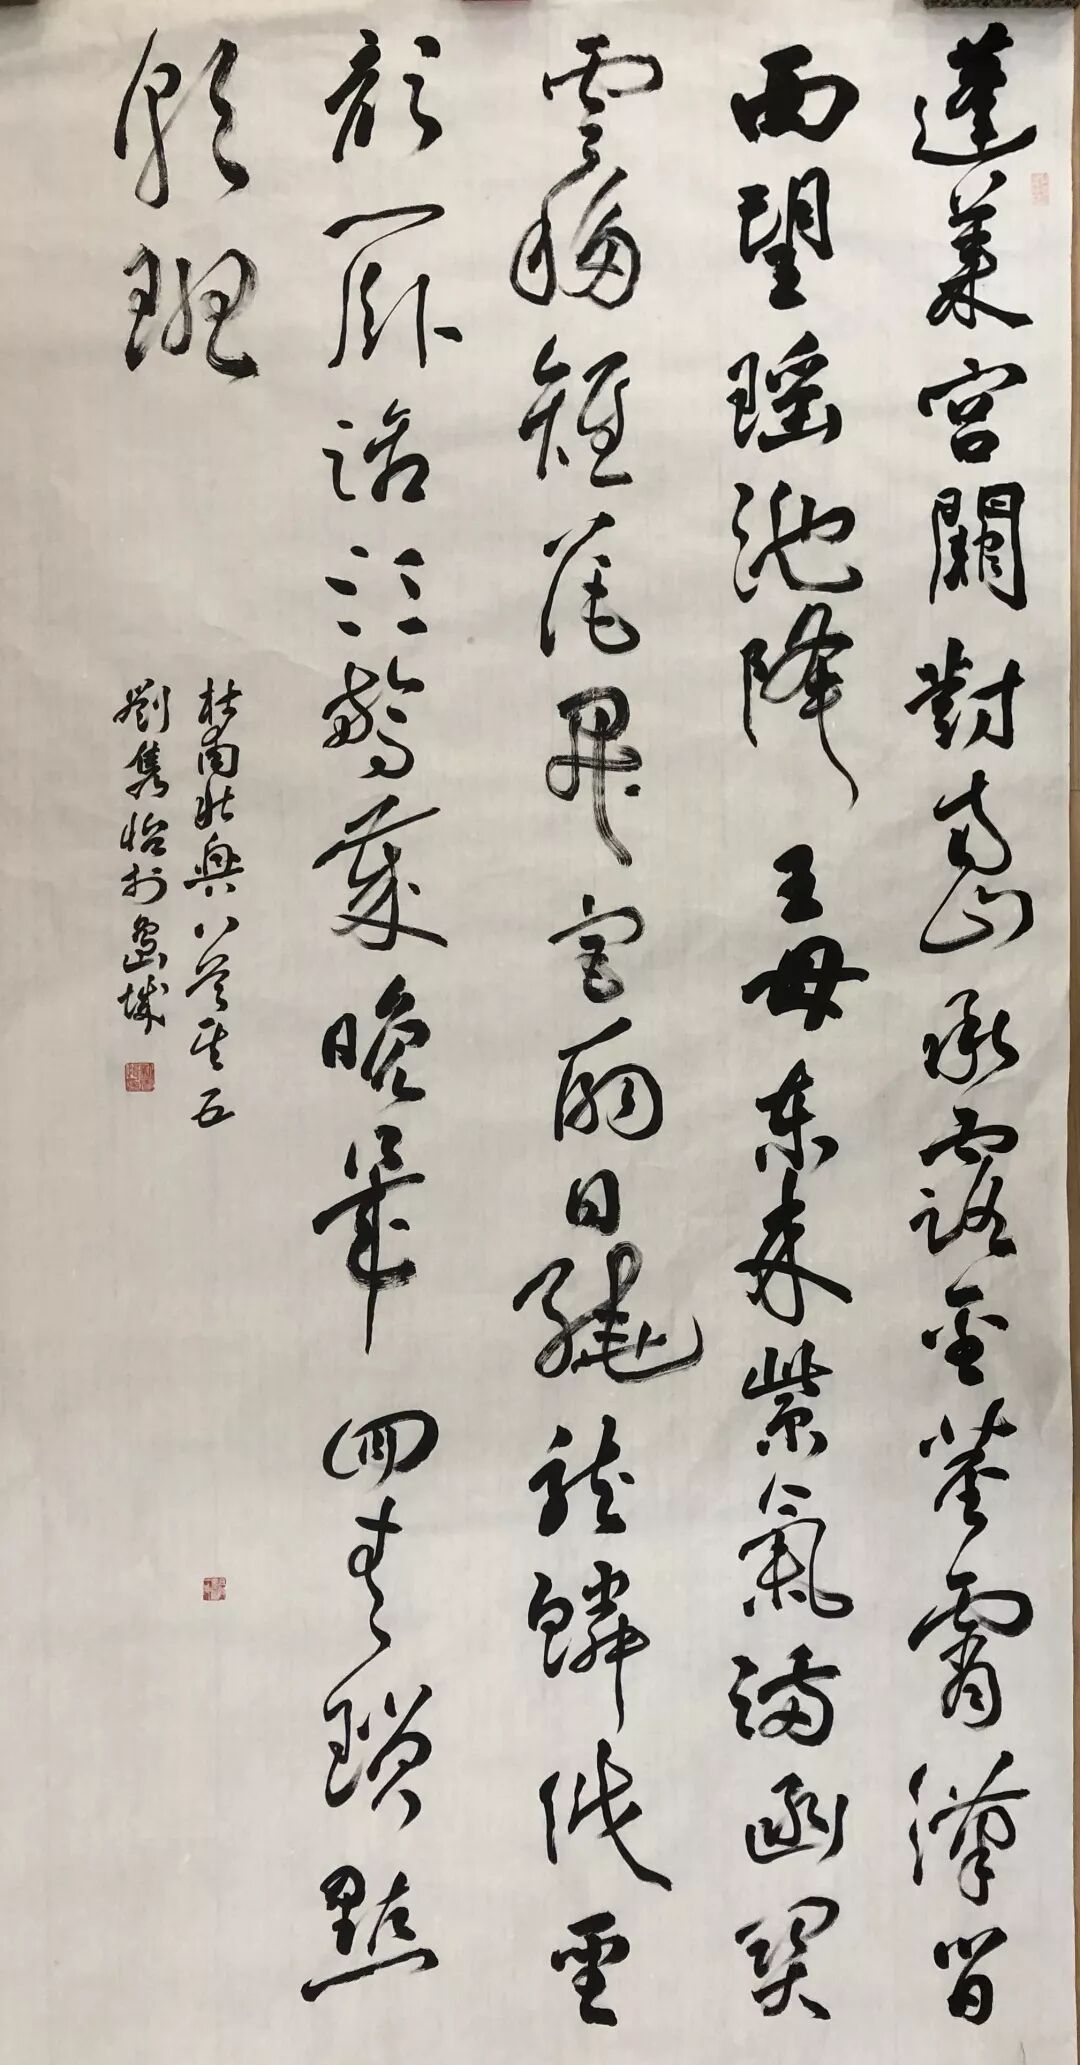 蓬萊宮闕對南山承露金莖霄漢間
西望瑤池降王母東來紫氣滿函關
雲移雉尾開宮扇日繞龍鱗識聖
顏一臥滄江驚歲晚幾回青瑣點
朝班
杜甫秋興八首其五
劉雋怡於島城